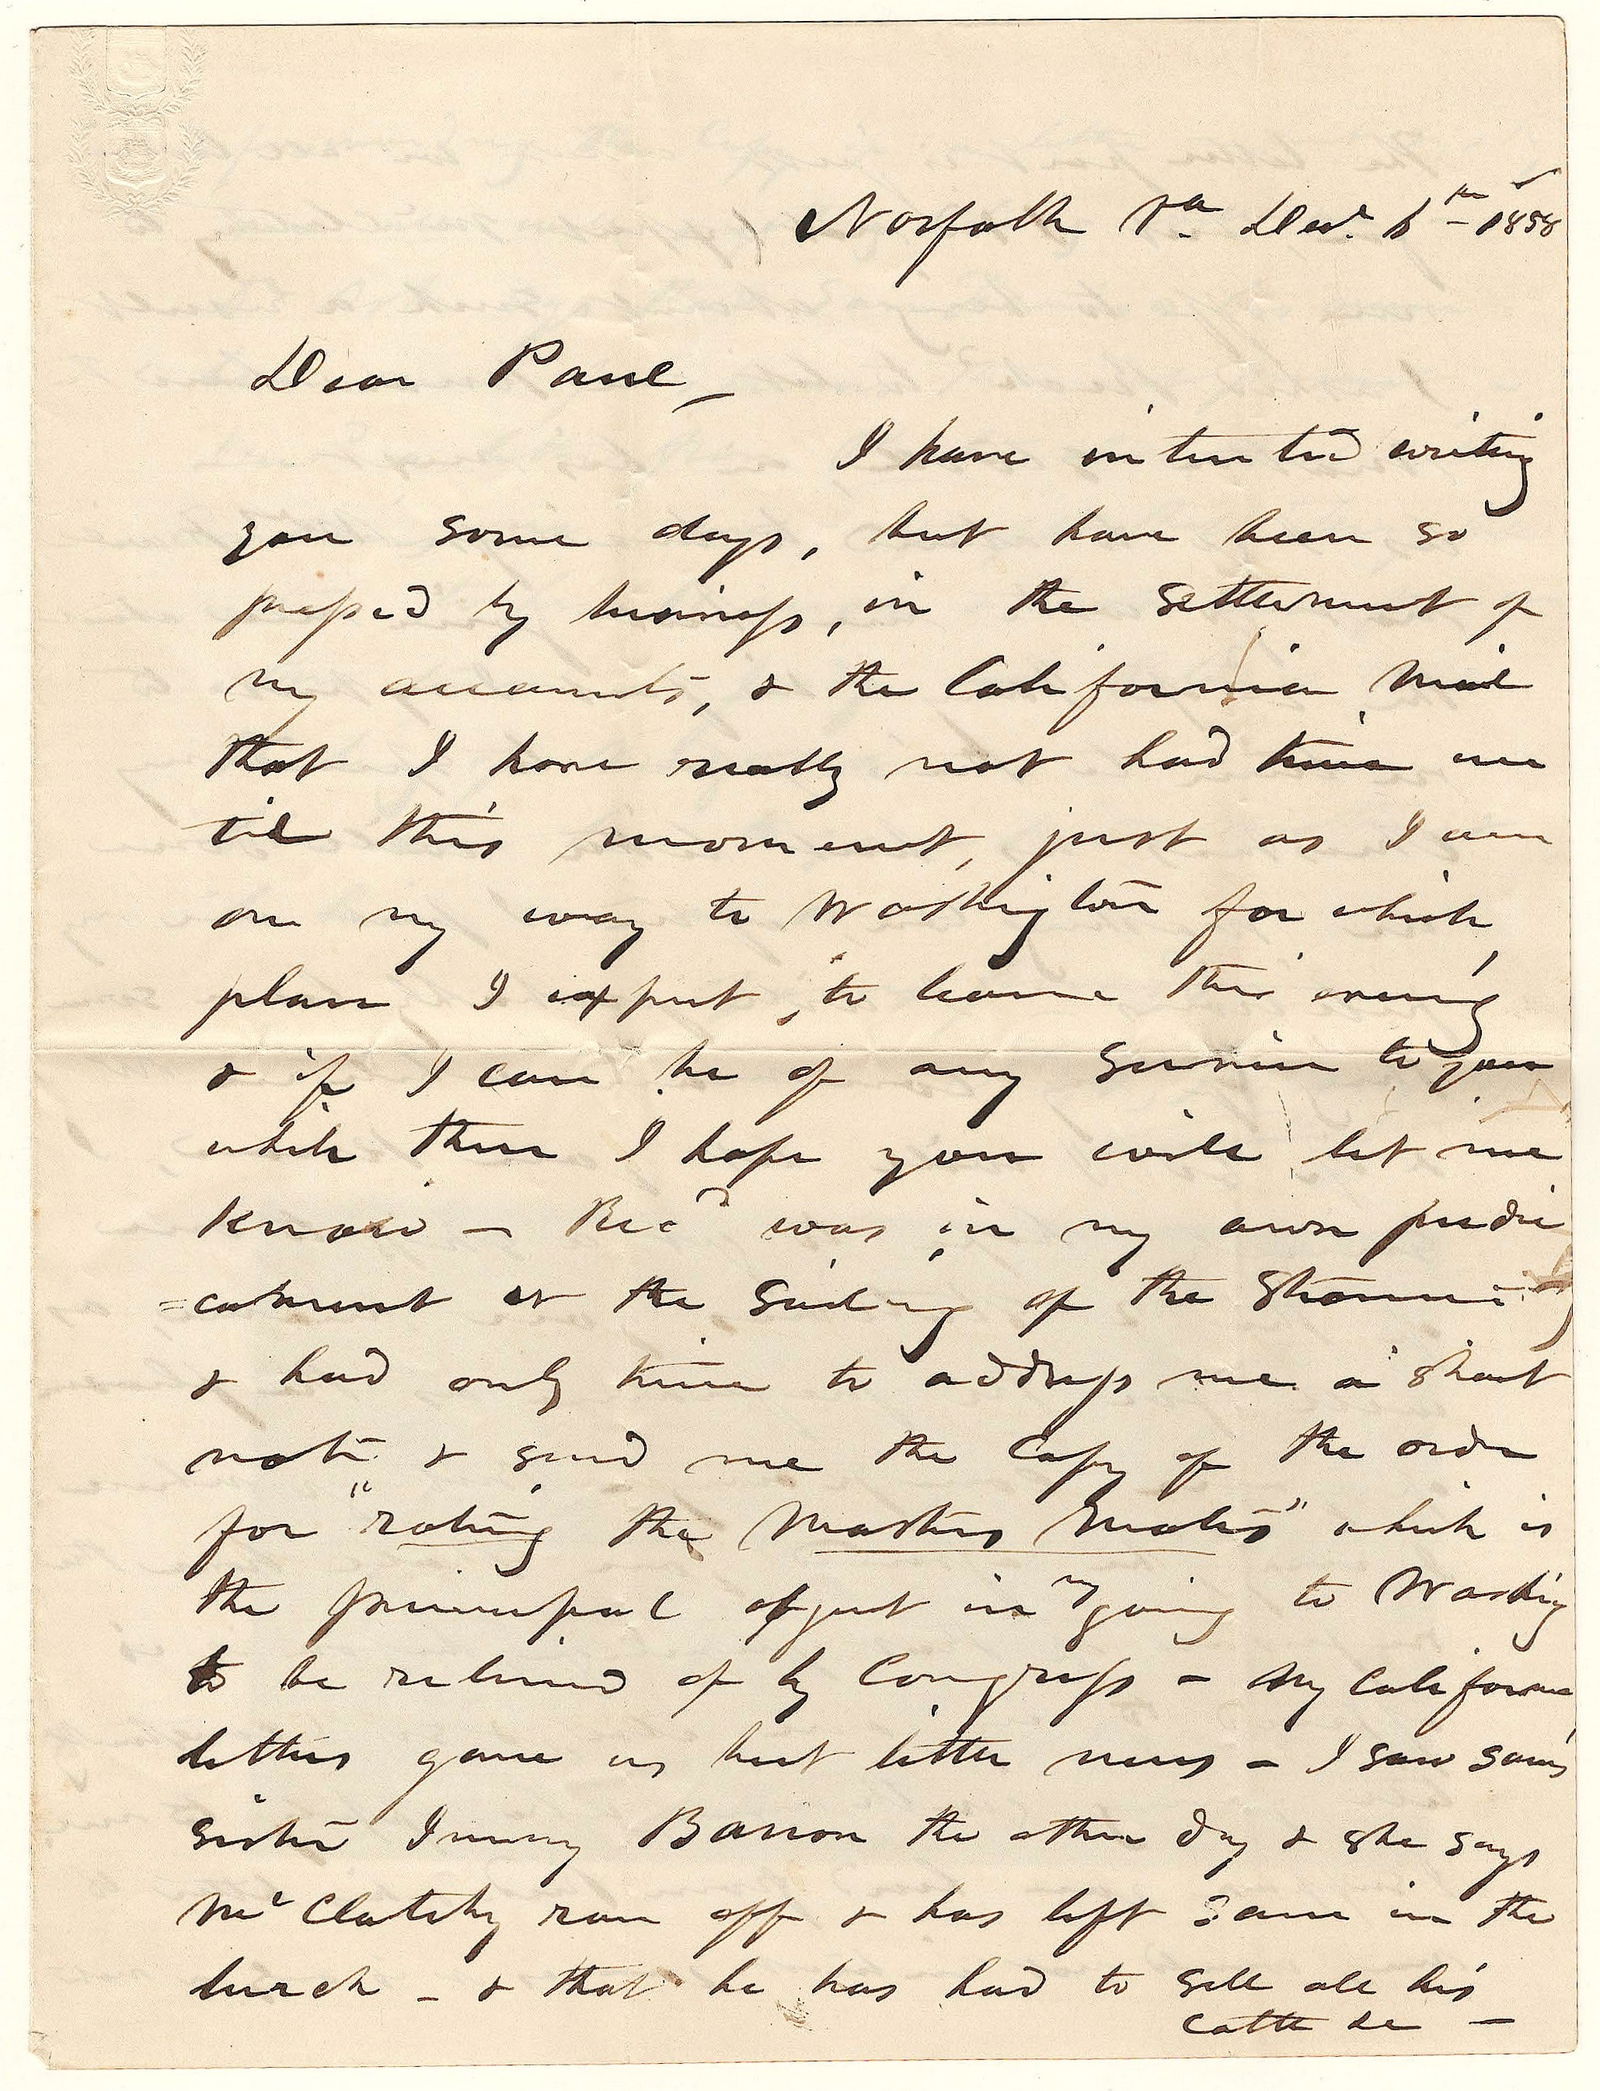 Norfolk Va Decr. 6th 1858
Dear Paul,
I have intented writing
you some days, but have been so
pressed by business, in the settlement of
my accounts, & the California Mail
that I have really not had time un
til this moment, just as I am
on my way to Washington for which
place I expect, to leave this evening
& if I can be of any service to you
while there I hope you will let me
know — Recd was in my own predi
=cament at the sailing of the Steamer
& had only time to address me a short
note & send me the Copy of the order
for "rating the Masters Mates" which is
the principal object in my going to Washing
to be relieved of by Congress — My California
letters gave us but little news — I saw Sam's
sister Imny Barron the other day & she says
Mc Clatchy ran off & has left Sam in the
lurch — & that he has had to sell all his
cattle &c —